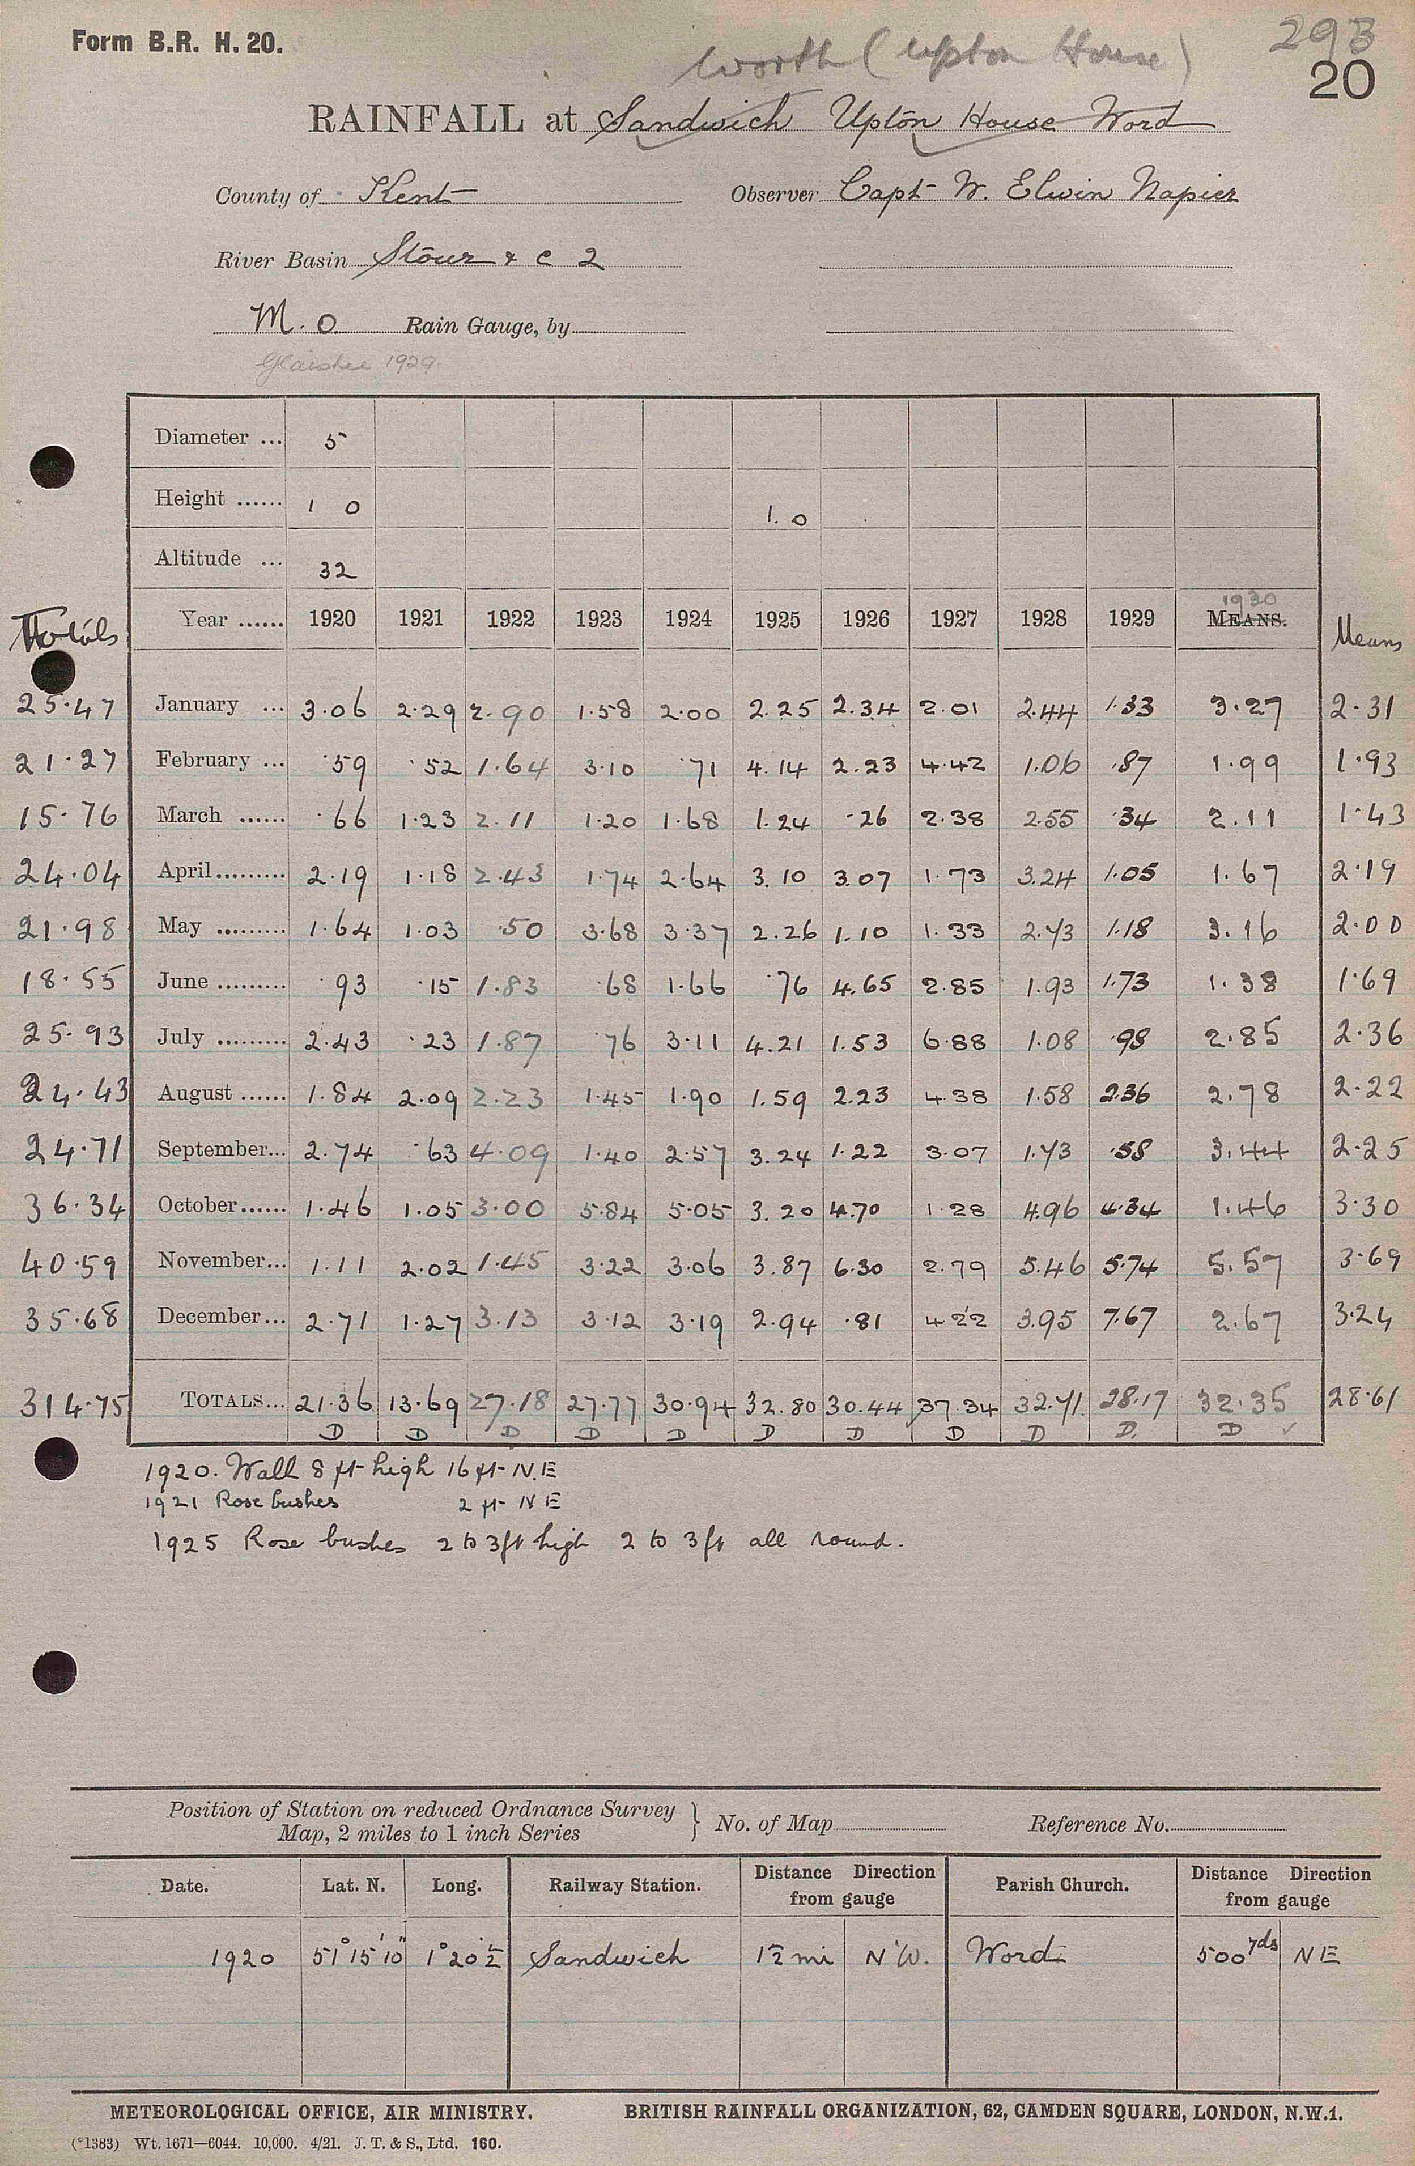 Form B.R. H. 20.
293
20
Worth (Upton House)
RAINFALL at Sandwich Upton House Word
County of Kent Observer Capt W. Elwin Napier
River Basin Stour & c 2
M. O Rain Gauge, by
Glaisher 1929.
Diameter ... 5
Height ...... 1 0 1. 0
Altitude ... 32
Totals Year ...... 1920 1921 1922 1923 1924 1925 1926 1927 1928 1929 1930 MEANS. Means
25.47 January ... 3.06 2.29 2.90 1.58 2.00 2.25 2.34 2.01 2.44 1.33 3.27 2.31
21.27 February ... .59 .52 1.64 3.10 .71 4.14 2.23 4.42 1.06 .87 1.99 1.93
15.76 March ...... .66 1.23 2.11 1.20 1.68 1.24 .26 2.38 2.55 .34 2.11 1.43
24.04 April......... 2.19 1.18 2.43 1.74 2.64 3.10 3.07 1.73 3.24 1.05 1.67 2.19
21.98 May ......... 1.64 1.03 .50 3.68 3.37 2.26 1.10 1.33 2.73 1.18 3.16 2.00
18.55 June ......... .93 .15 1.83 .68 1.66 .76 4.65 2.85 1.93 1.73 1.38 1.69
25.93 July ......... 2.43 .23 1.87 .76 3.11 4.21 1.53 6.88 1.08 .98 2.85 2.36
24.43 August ...... 1.84 2.09 2.23 1.45 1.90 1.59 2.23 4.38 1.58 2.36 2.78 2.22
24.71 September... 2.74 .63 4.09 1.40 2.57 3.24 1.22 3.07 1.73 .58 3.44 2.25
36.34 October...... 1.46 1.05 3.00 5.84 5.05 3.20 4.70 1.28 4.96 4.34 1.46 3.30
40.59 November... 1.11 2.02 1.45 3.22 3.06 3.87 6.30 2.79 5.46 5.74 5.57 3.69
35.68 December... 2.71 1.27 3.13 3.12 3.19 2.94 .81 4.22 3.95 7.67 2.67 3.24
314.75 TOTALS... 21.36 13.69 27.18 27.77 30.94 32.80 30.44 37.34 32.71 28.17 32.35 28.61
D D D D D D D D D D. D ✓
1920. Wall 8 ft high 16 ft N.E
1921 Rose bushes 2 ft NE
1925 Rose bushes 2 to 3ft high 2 to 3ft all round.
Position of Station on reduced Ordnance Survey
Map, 2 miles to 1 inch Series } No. of Map Reference No.
Date. Lat. N. Long. Railway Station. Distance Direction from gauge Parish Church. Distance Direction from gauge
1920 51° 15' 10" 1° 20 ½' Sandwich 1½ mi N W. Word 500 yds NE
METEOROLOGICAL OFFICE, AIR MINISTRY. BRITISH RAINFALL ORGANIZATION, 62, CAMDEN SQUARE, LONDON, N.W.1.
(*1383) Wt. 1671—6044. 10,000. 4/21. J. T. & S., Ltd. 160.